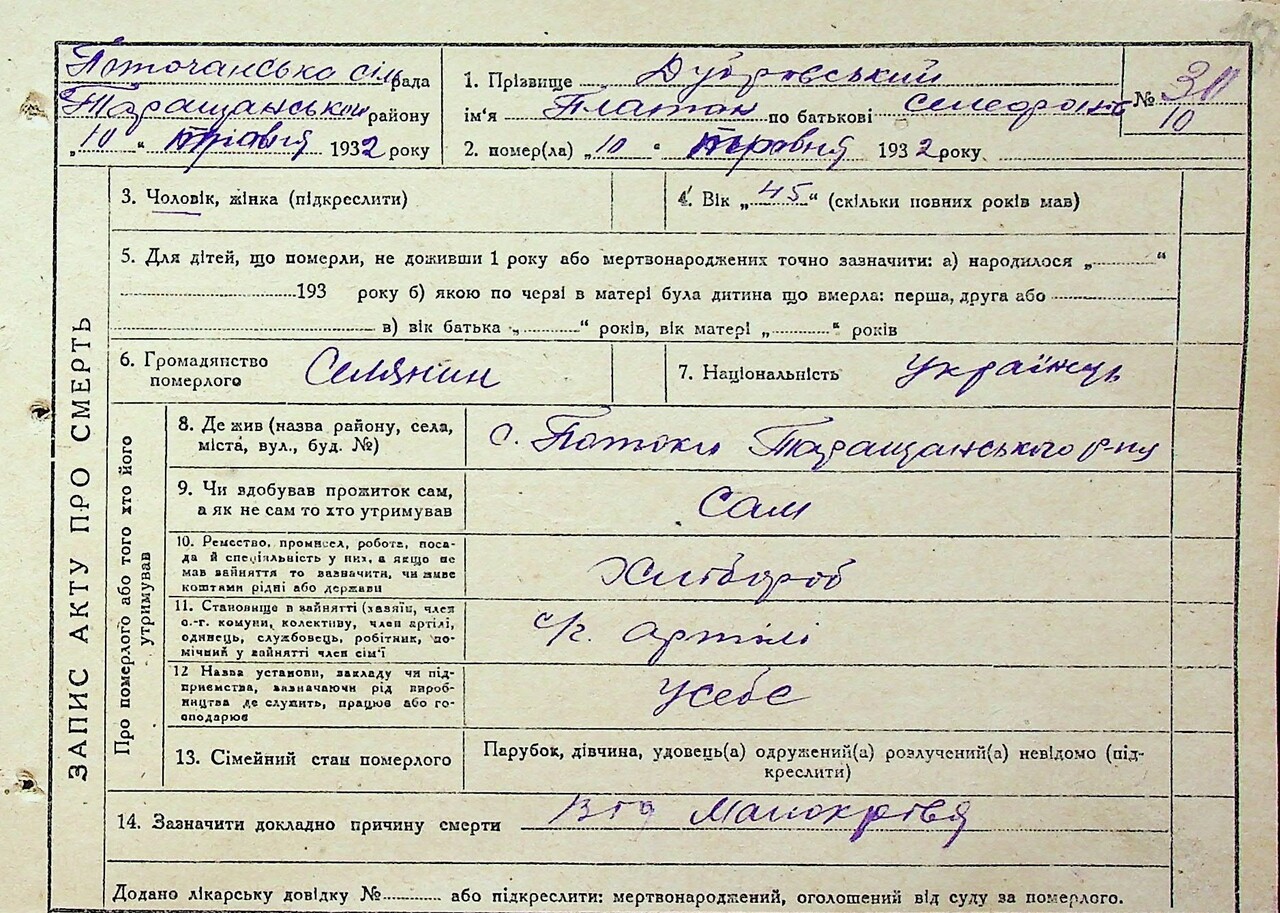 Поточанська сільрада
Таращанськой району
„10“ травня 1932 року
1. Прізвище Дубровський
ім'я Платон по батькові
№ 10
2. помер(ла) „10“ травня 1932 року
ЗАПИС АКТУ ПРО СМЕРТЬ
3. Чоловік, жінка (підкреслити)
4. Вік „45“ (скільки повних років мав)
5. Для дітей, що померли, не доживши 1 року або мертвонароджених точно зазначити: а) народилося „ “
193 року б) якою по черзі в матері була дитина що вмерла: перша, друга або
в) вік батька „ “ років, вік матері „ “ років
6. Громадянство
померлого
Селянин
7. Національність Українець
Про померлого або того хто його
утримував
8. Де жив (назва району, села,
міста, вул., буд. №)
с. Потоки Таращанського р-ну
9. Чи здобував прожиток сам,
а як не сам то хто утримував
Сам
10. Ремество, промисел, робота, поса-
да й спеціяльність у них, а якщо не
мав зайняття то зазначити, чи живе
коштами рідні або держави
Хлібороб
11. Становище в зайнятті (хазяїн, член
с.-г. комуни, колективу, член артілі,
одинець, службовець, робітник, по-
мічний у зайнятті член сім'ї
с/г. артілі
12 Назва установи, закладу чи під-
приємства, зазначаючи рід вироб-
ництва де служить, працює або го-
сподарює
Усебе
13. Сімейний стан померлого
Парубок, дівчина, удовець(а) одружений(а) розлучений(а) невідомо (під-
креслити)
14. Зазначити докладно причину смерти Від Малокрівя
Додано лікарську довідку № або підкреслити: мертвонароджений, оголошений від суду за померлого.